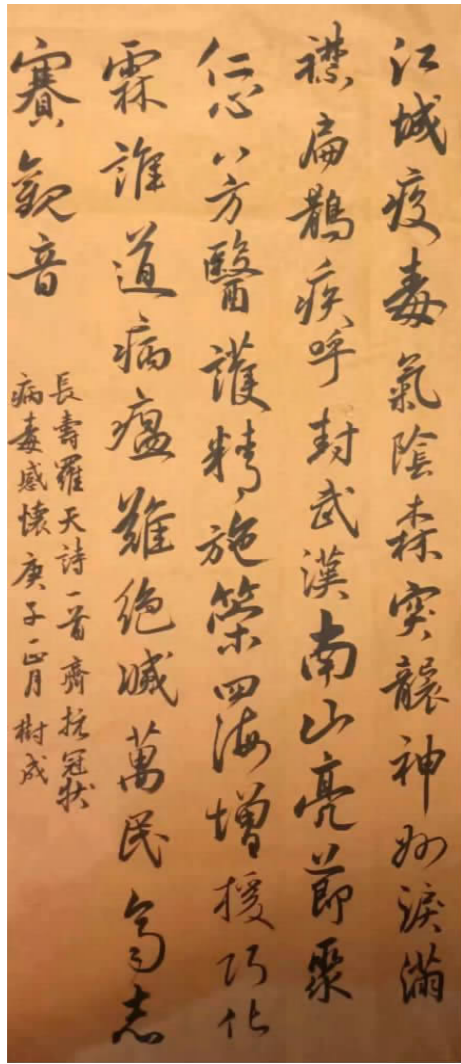 江城疫毒氣陰森突襲神州淚滿
襟扁鵲疾呼封武漢南山亮節聚
仁心八方醫護精施策四海增援巧化
霖誰道病瘟難绝滅萬民高志
賽觀音
長壽羅天詩一首齊抗冠状
病毒感懷庚子正月樹成